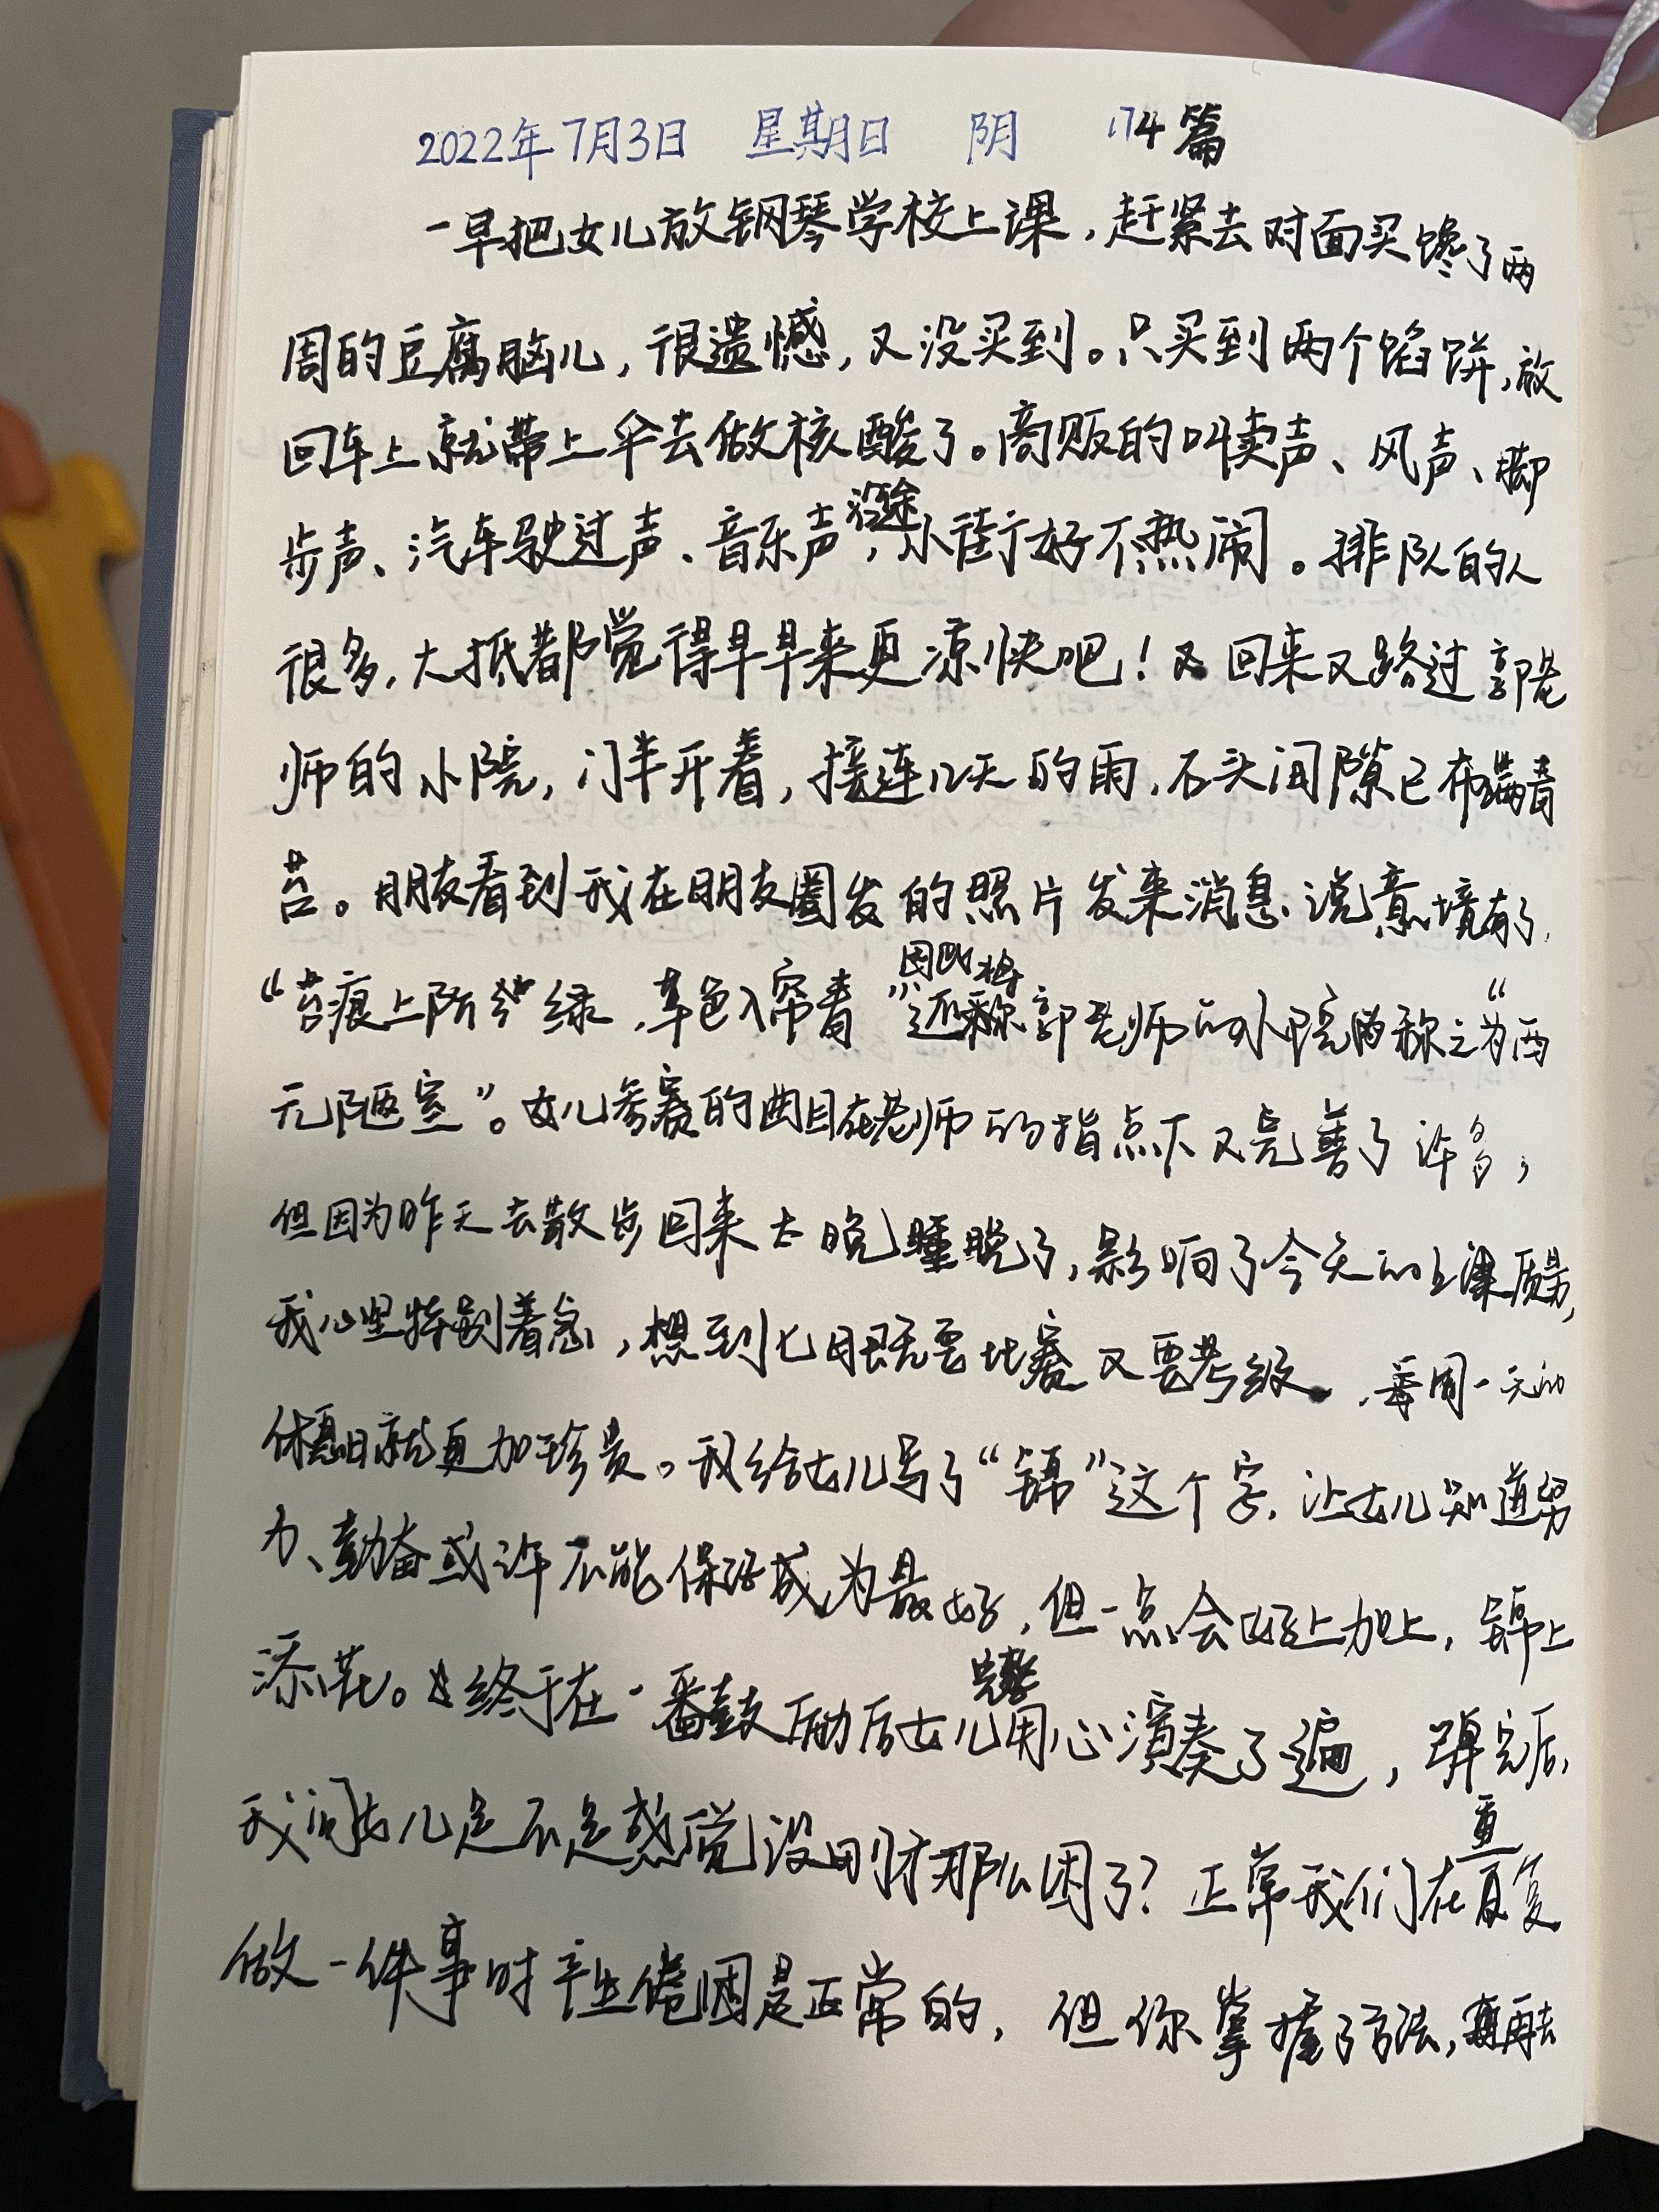 2022年7月3日 星期日 阴 174篇
一早把女儿放钢琴学校上课,赶紧去对面买馋了两
周的豆腐脑儿,很遗憾,又没买到。只买到两个馅饼,放
回车上就带上伞去做核酸了。商贩的叫卖声、风声、脚
步声、汽车驶过声、音乐声,沿途小街好不热闹。排队的人
很多,大抵都觉得早早来更凉快吧!回来又路过郭老
师的小院,门半开着,接连几天的雨,石头间隙已布满青
苔。朋友看到我在朋友圈发的照片发来消息说意境有了,
“苔痕上阶绿,草色入帘青”,因此将郭老师的小院称之为“两
元陋室”。女儿参赛的曲目在老师的指点下又完善了许多,
但因为昨天去散步回来太晚睡晚了,影响了今天的上课质量,
我心里特别着急,想到七月既要比赛又要考级,每周一天的
休息日就更加珍贵。我给女儿写了“锦”这个字,让女儿知道努
力、勤奋或许不能保证成为最好,但一点会好上加上,锦上
添花。终于在一番鼓励后女儿完整用心演奏了遍,弹完后,
我问女儿是不是感觉没刚才那么困了?正常我们在重复
做一件事时产生倦困是正常的,但你掌握了方法,再去